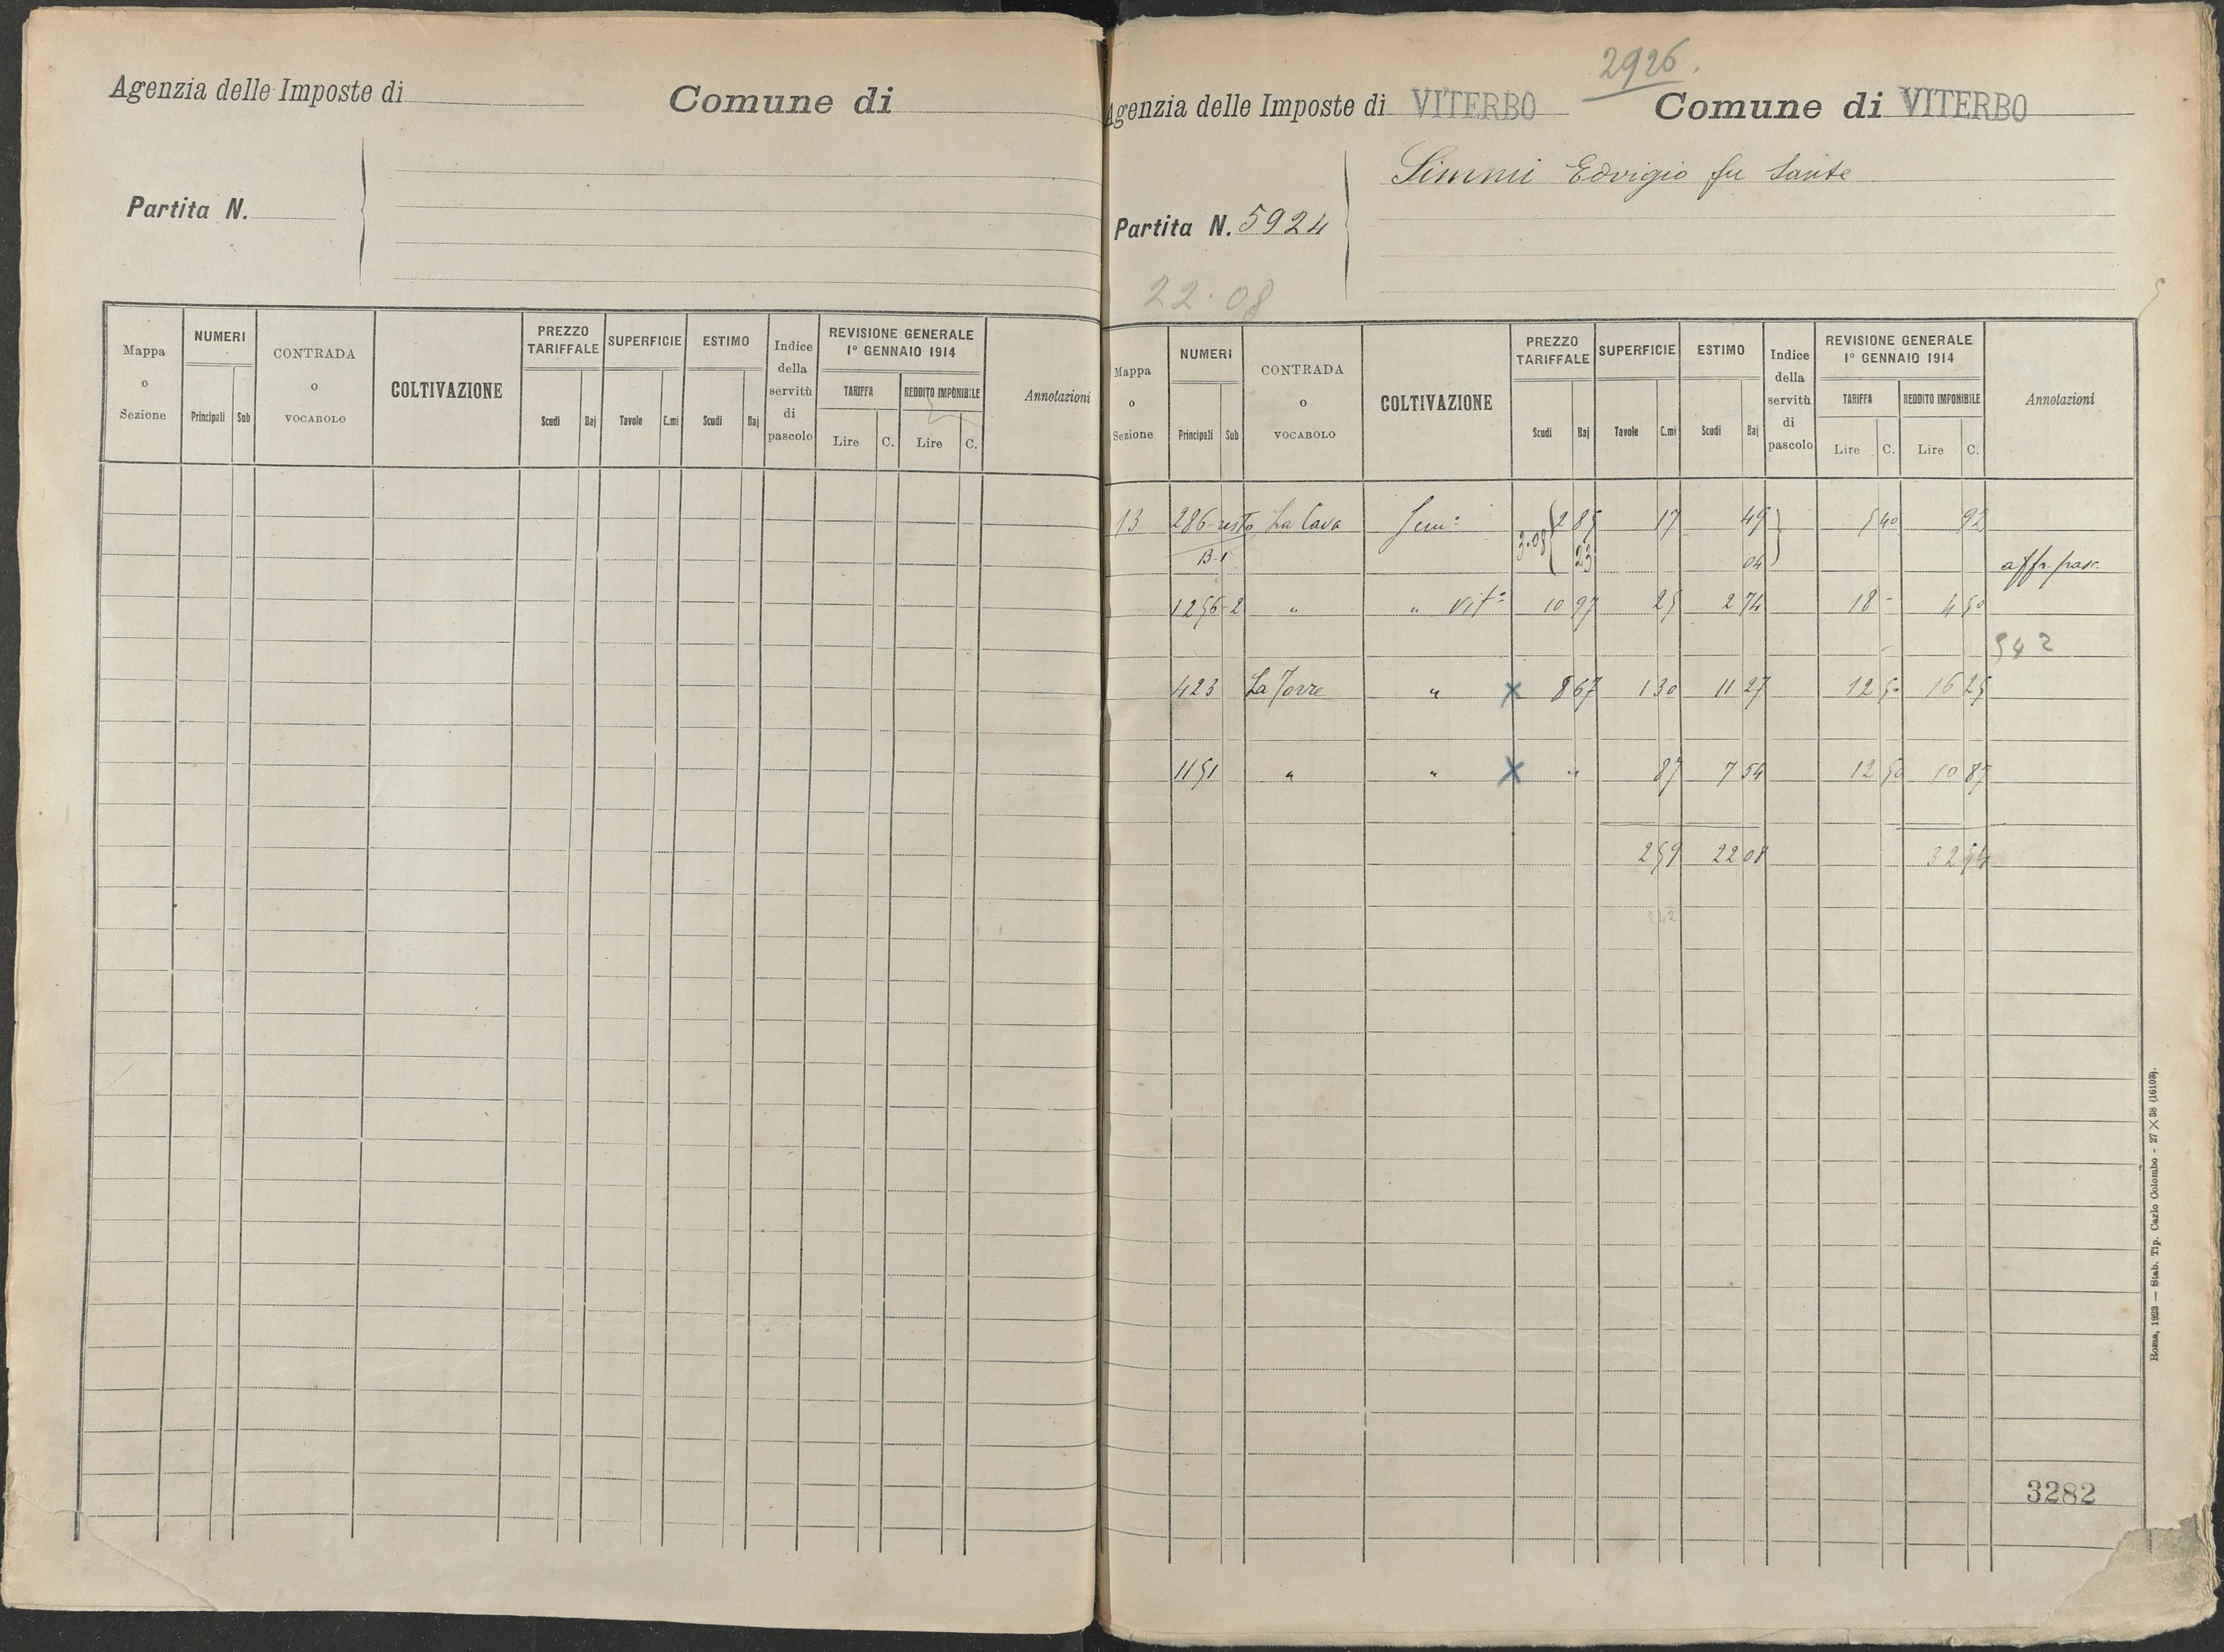 Agenzia delle Imposte di
Comune di
Partita N.
Mappa o Sezione
NUMERI
Principali Sub
CONTRADA o VOCABOLO
COLTIVAZIONE
PREZZO TARIFFALE
Scudi Baj
SUPERFICIE
Tavole C.mi
ESTIMO
Scudi Baj
Indice della servitù di pascolo
REVISIONE GENERALE
1° GENNAIO 1914
TARIFFA
Lire C.
REDDITO IMPONIBILE
Lire C.
Annotazioni
2926.
Agenzia delle Imposte di VITERBO
Comune di VITERBO
Partita N. 5924
Simmi Edvigio fu Sante
22.08
Mappa o Sezione
NUMERI
Principali Sub
CONTRADA o VOCABOLO
COLTIVAZIONE
PREZZO TARIFFALE
Scudi Baj
SUPERFICIE
Tavole C.mi
ESTIMO
Scudi Baj
Indice della servitù di pascolo
REVISIONE GENERALE
1° GENNAIO 1914
TARIFFA
Lire C.
REDDITO IMPONIBILE
Lire C.
Annotazioni
13 286-resto La Cava Sem° 3.08 2 85 17 49 5 40 92
B-1 23 04 affr. pasc.
1256-2 " " Vit° 10 97 25 2 74 18 - 4 50
542
423 La Torre " x 8 67 1 30 11 27 12 50 16 25
1151 " " x " 87 7 54 12 50 10 87
2 59 22 08 32 54
242
3282
Roma, 1923 — Stab. Tip. Carlo Colombo - 27 × 38 (16193).